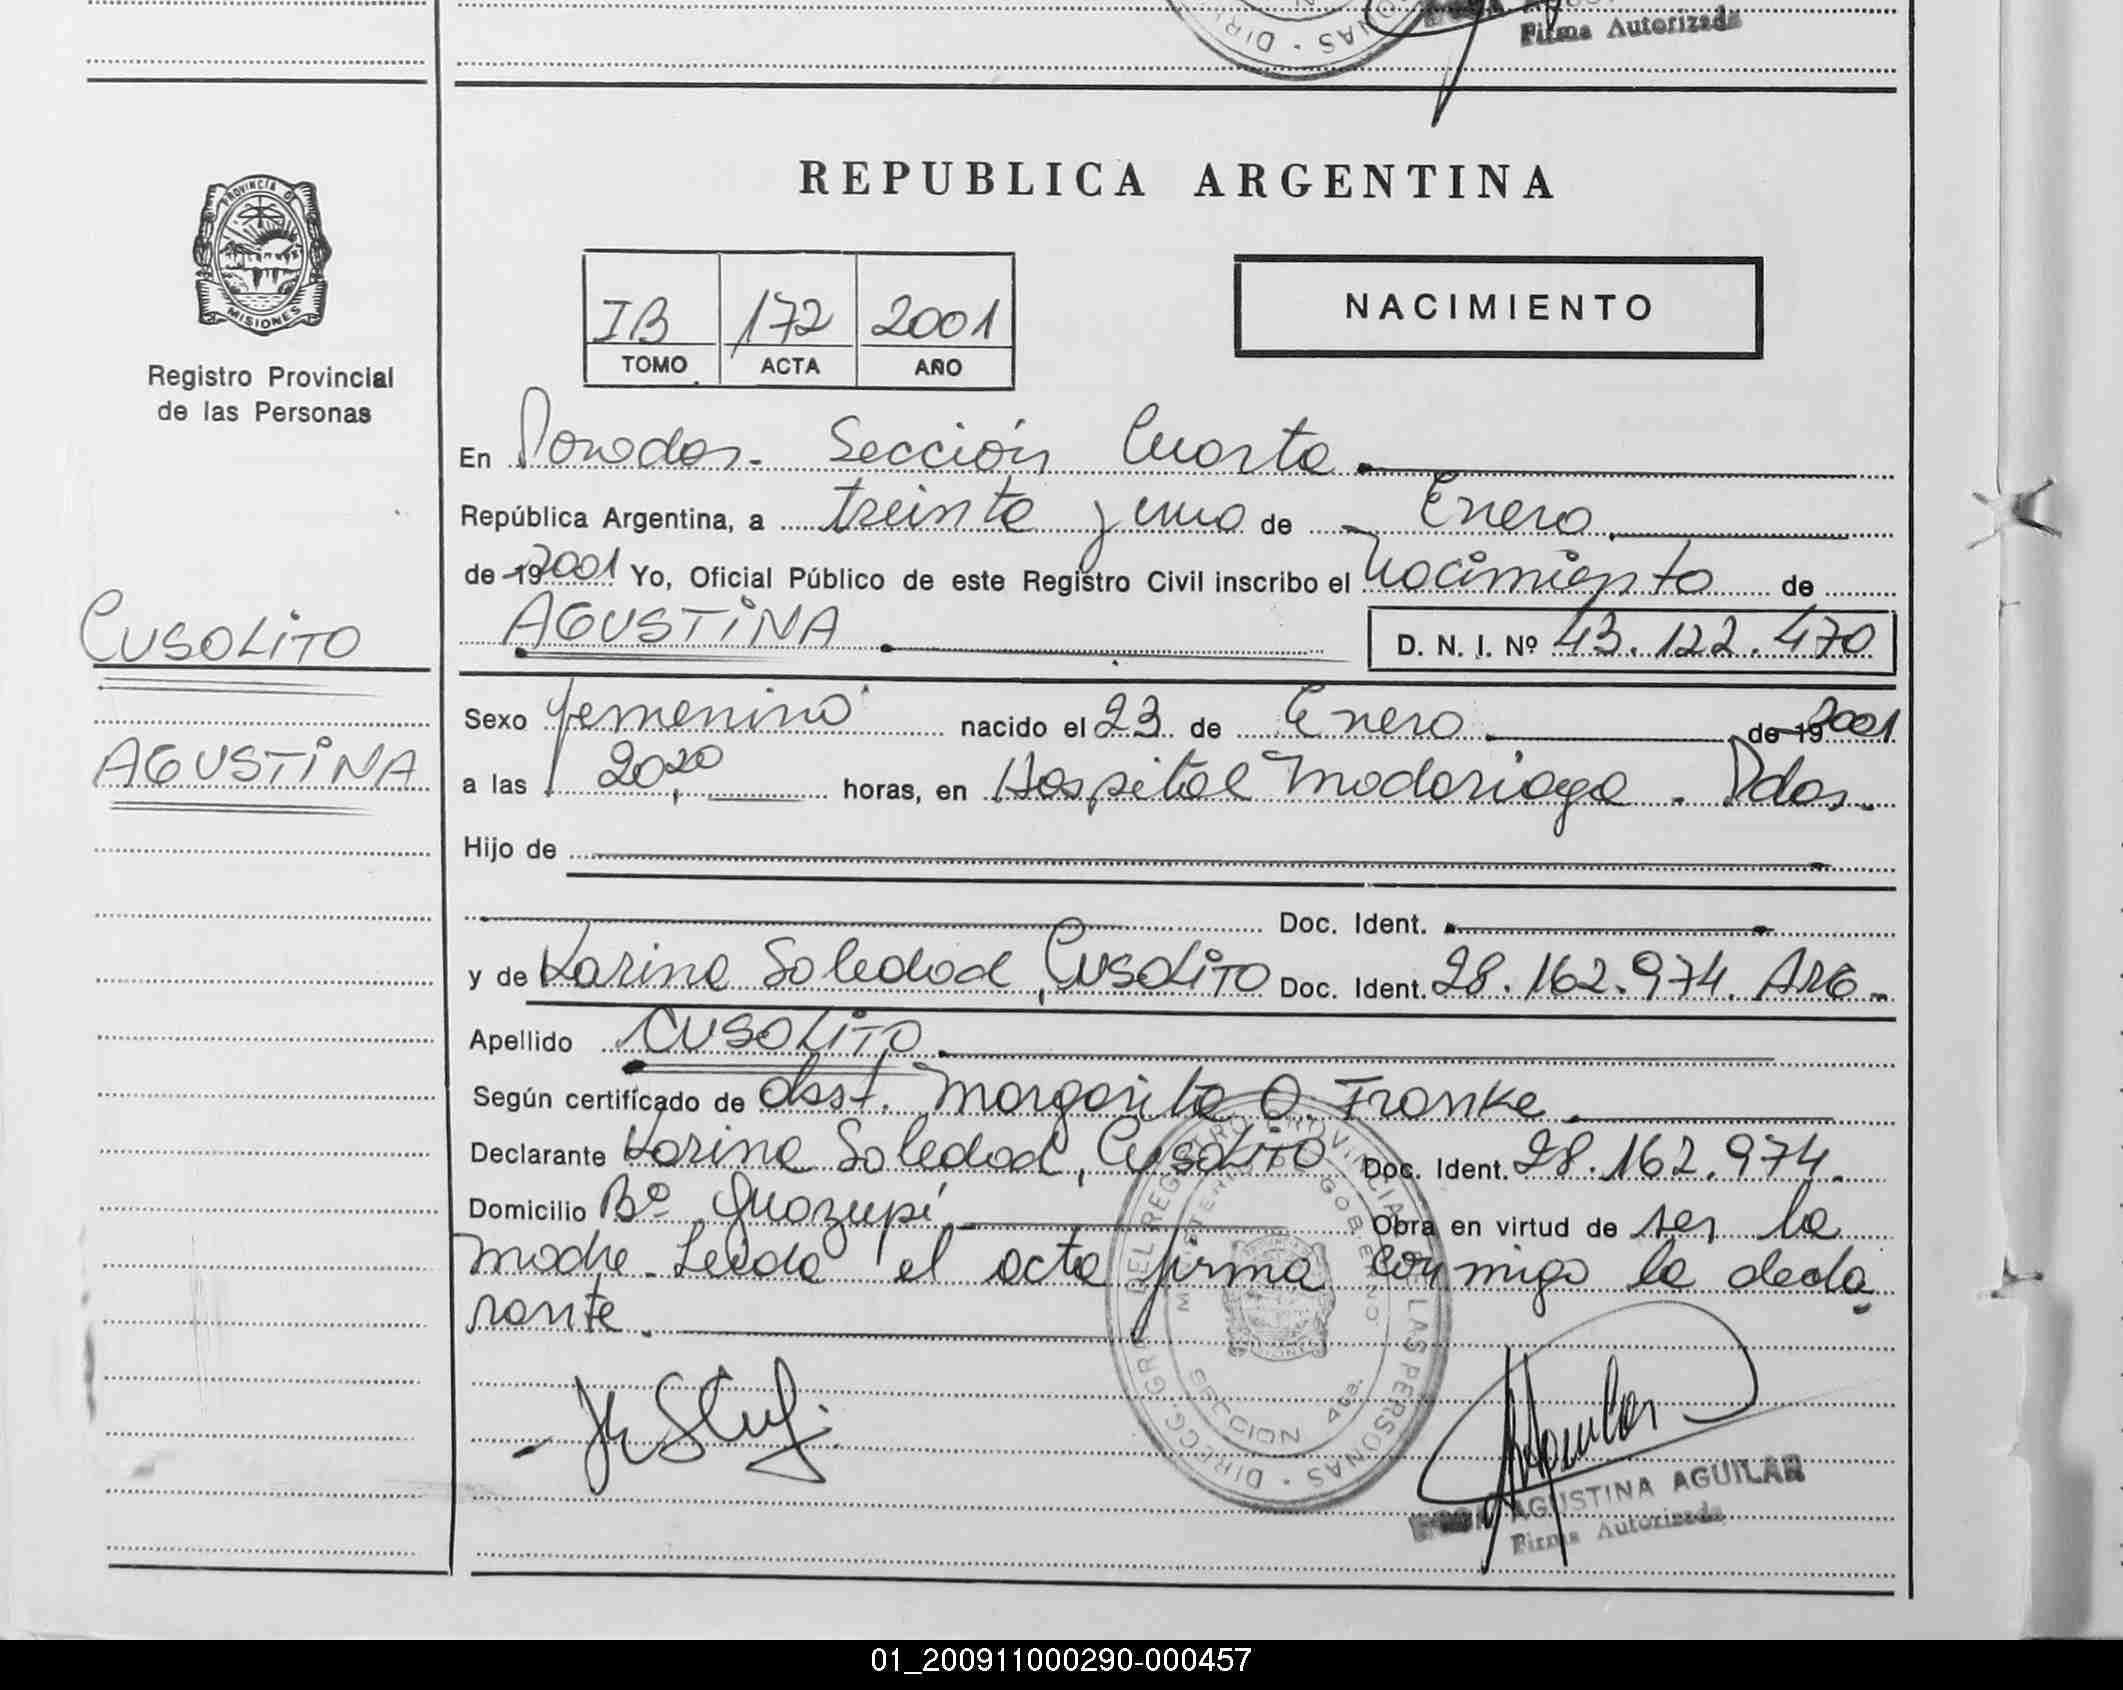 Firma Autorizada
REPUBLICA ARGENTINA
PROVINCIA DE
MISIONES
Registro Provincial
de las Personas
IB 172 2001
TOMO ACTA AÑO
NACIMIENTO
En Posadas. Sección Cuarta
República Argentina, a treinta y uno de Enero
de 19 2001 Yo, Oficial Público de este Registro Civil inscribo el Nacimiento de
AGUSTINA D. N. I. Nº 43.122.470
CUSOLITO
AGUSTINA
Sexo femenino nacido el 23 de Enero de 19 2001
a las 20,20 horas, en Hospital Madariaga. Pdas.
Hijo de
Doc. Ident.
y de Karina Soledad, CUSOLITO Doc. Ident. 28.162.974. ARG.
Apellido CUSOLITO
Según certificado de obst. Margarita O. Franke.
Declarante Karina Soledad, CUSOLITO Doc. Ident. 28.162.974.
Domicilio Bº Guazupí, Obra en virtud de ser la
madre. Leída el acta firma conmigo la decla
rante.
DIRECC. GRAL. DEL REGISTRO PROVINCIAL DE LAS PERSONAS
MINISTERIO DE GOBIERNO
SECCION 4ta.
AGUSTINA AGUILAR
Firma Autorizada
01_200911000290-000457